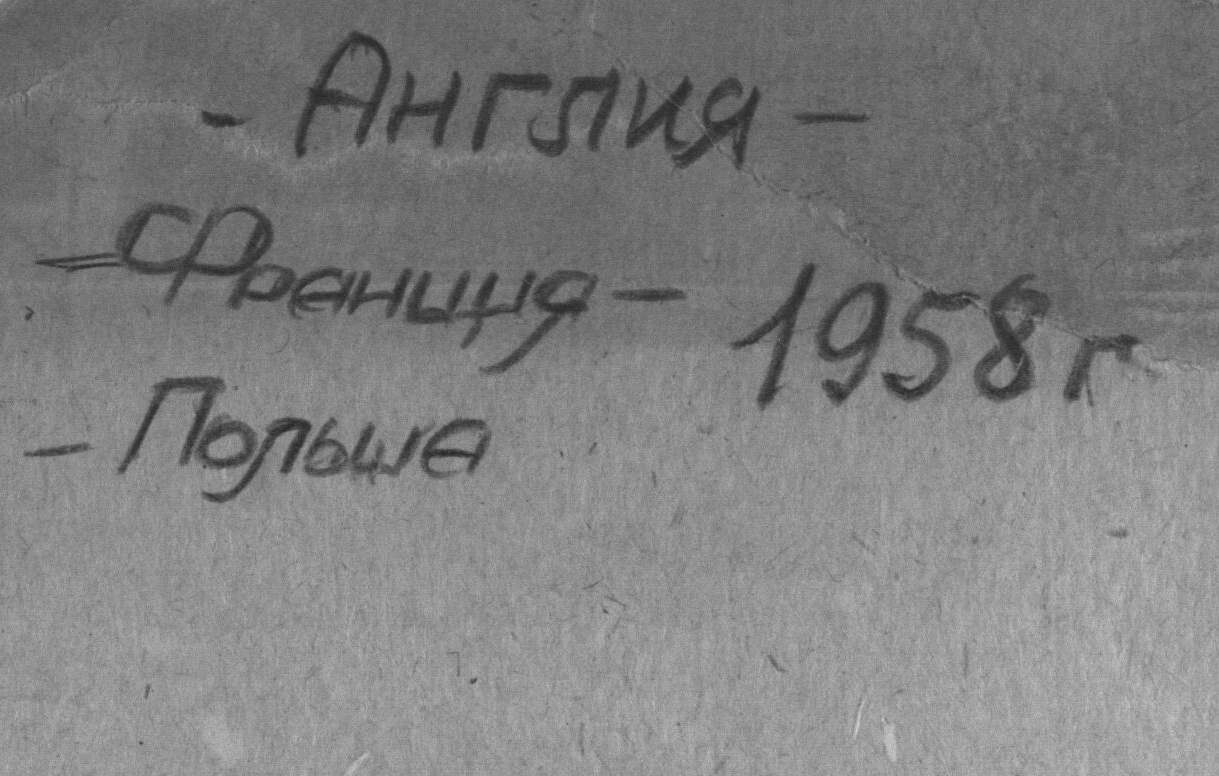 - Англия -
- Франция - 1958 г
- Польша